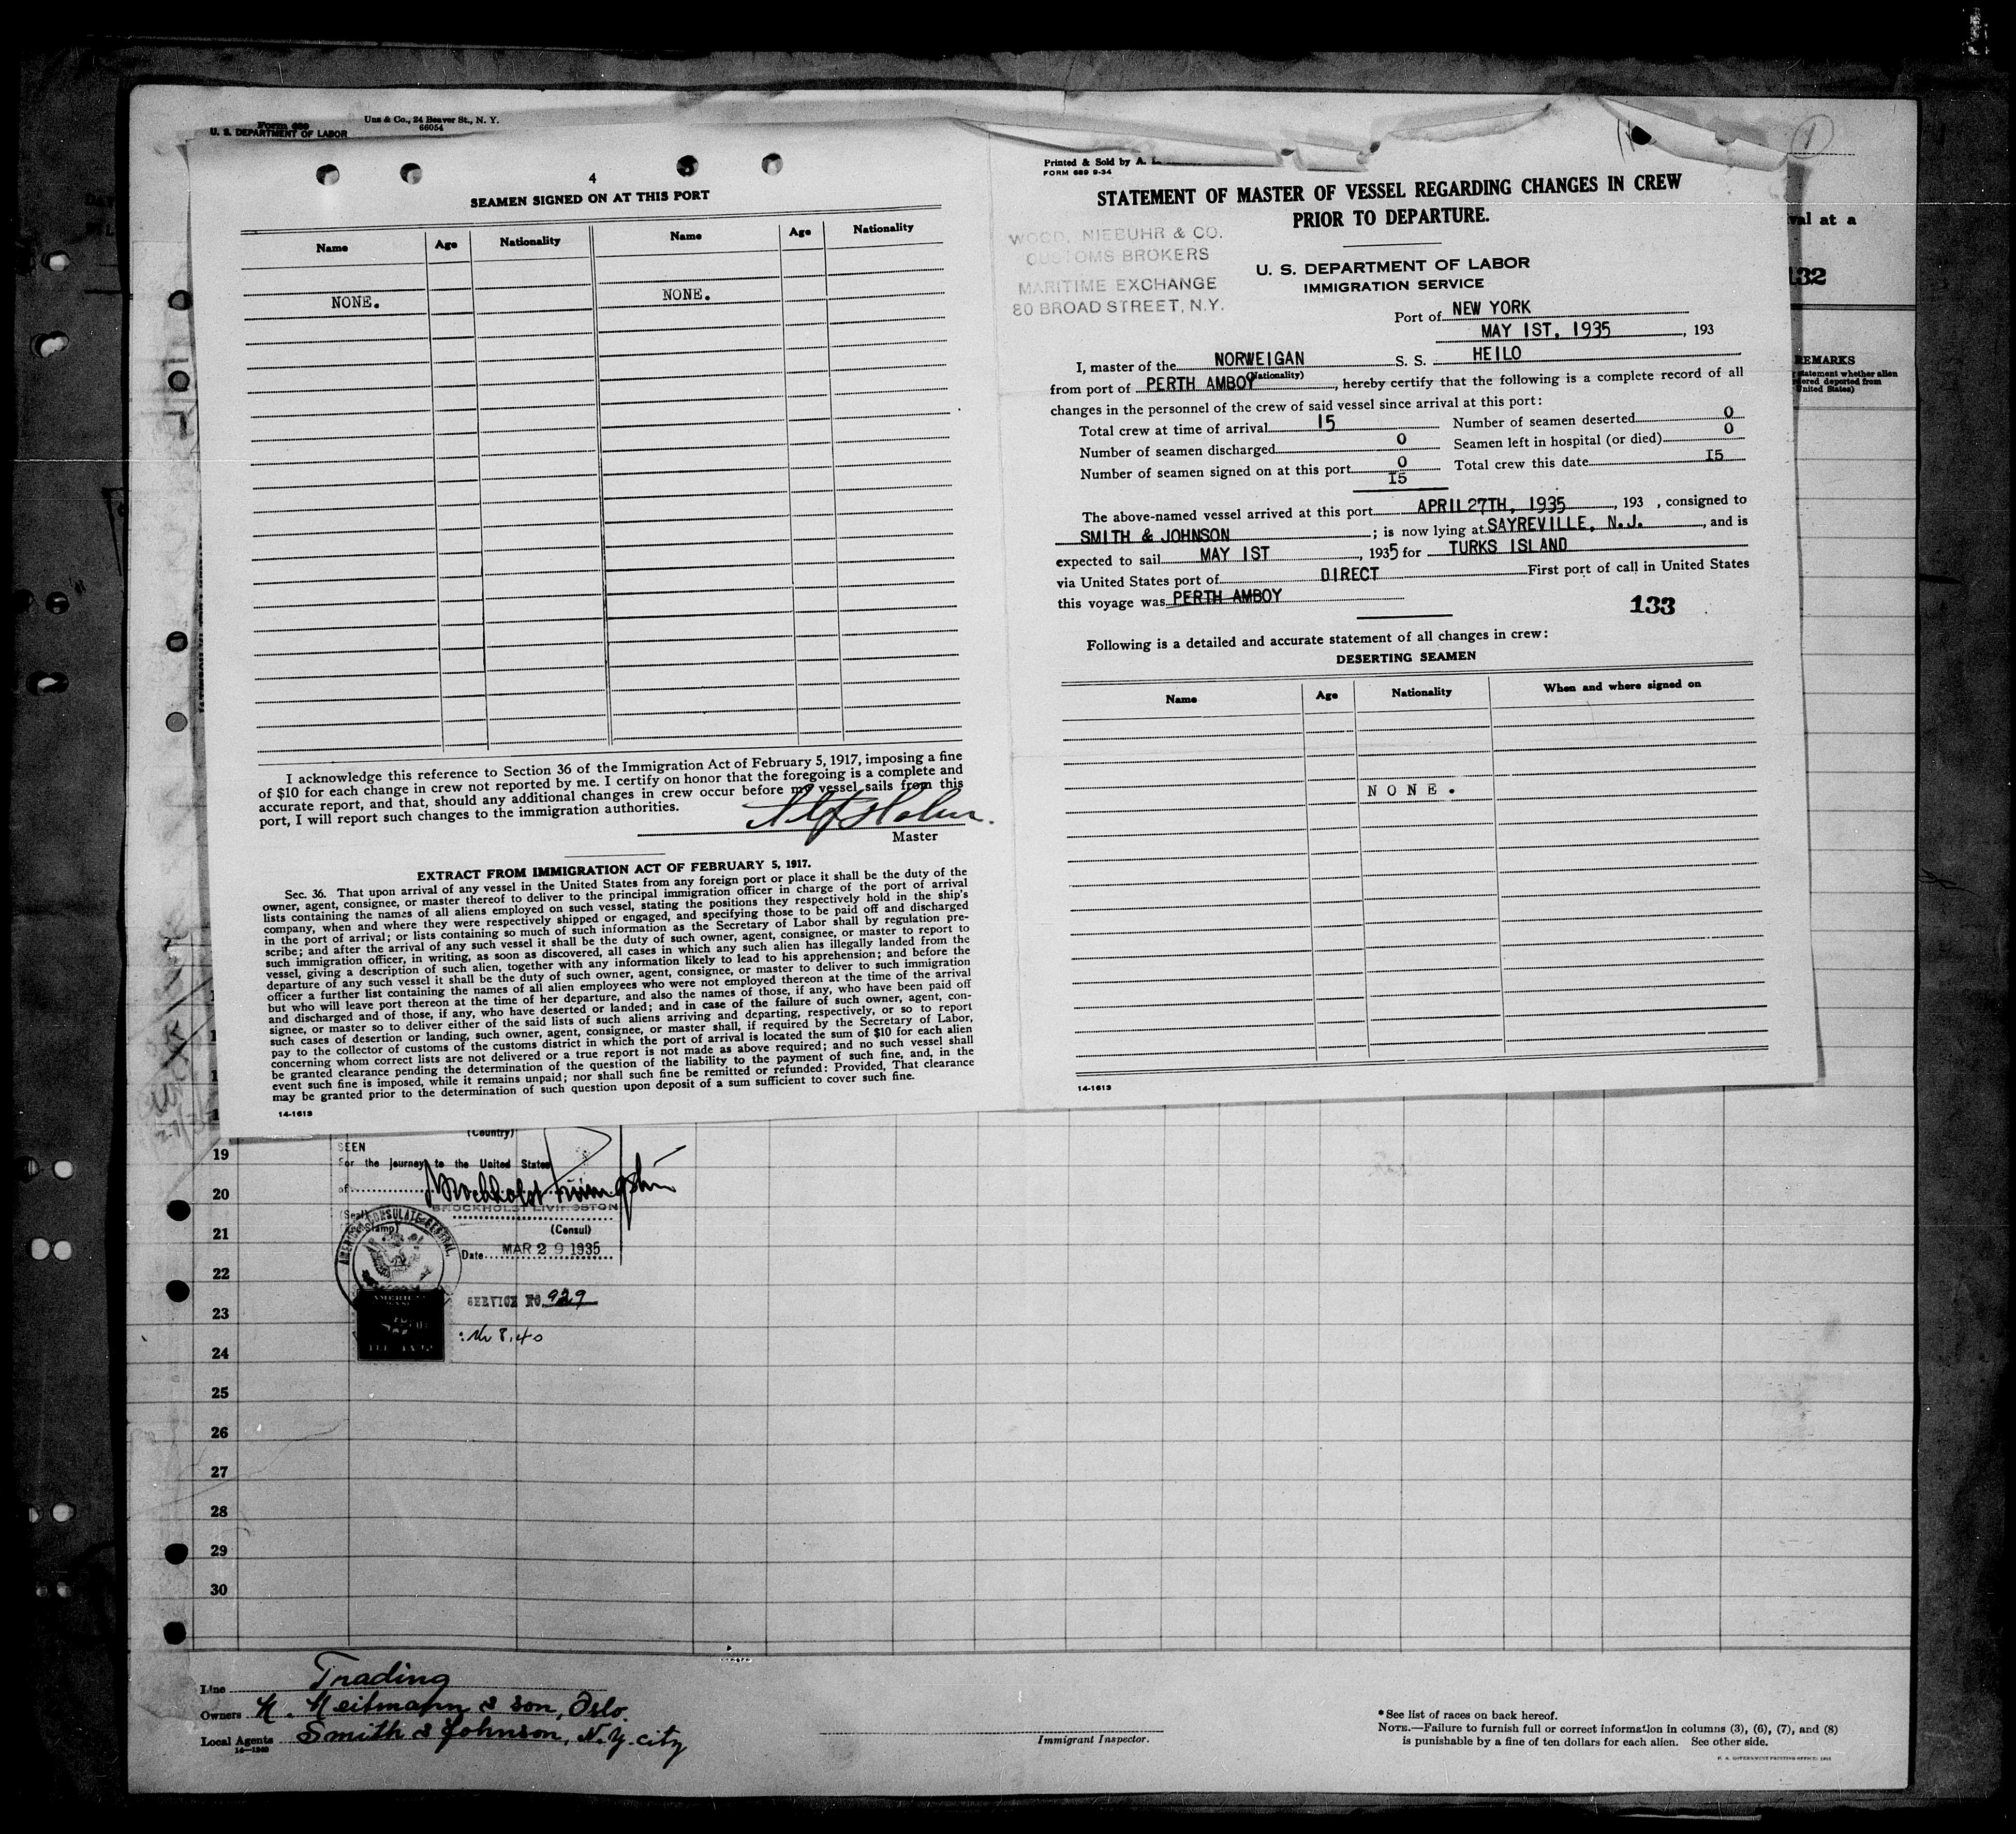 Form 689
U. S. DEPARTMENT OF LABOR
Unz & Co., 24 Beaver St., N. Y.
66054
4
SEAMEN SIGNED ON AT THIS PORT
Name Age Nationality Name Age Nationality
NONE. NONE.
I acknowledge this reference to Section 36 of the Immigration Act of February 5, 1917, imposing a fine
of $10 for each change in crew not reported by me. I certify on honor that the foregoing is a complete and
accurate report, and that, should any additional changes in crew occur before my vessel sails from this
port, I will report such changes to the immigration authorities.
Master
EXTRACT FROM IMMIGRATION ACT OF FEBRUARY 5, 1917.
Sec. 36. That upon arrival of any vessel in the United States from any foreign port or place it shall be the duty of the
owner, agent, consignee, or master thereof to deliver to the principal immigration officer in charge of the port of arrival
lists containing the names of all aliens employed on such vessel, stating the positions they respectively hold in the ship's
company, when and where they were respectively shipped or engaged, and specifying those to be paid off and discharged
in the port of arrival; or lists containing so much of such information as the Secretary of Labor shall by regulation pre-
scribe; and after the arrival of any such vessel it shall be the duty of such owner, agent, consignee, or master to report to
such immigration officer, in writing, as soon as discovered, all cases in which any such alien has illegally landed from the
vessel, giving a description of such alien, together with any information likely to lead to his apprehension; and before the
departure of any such vessel it shall be the duty of such owner, agent, consignee, or master to deliver to such immigration
officer a further list containing the names of all alien employees who were not employed thereon at the time of the arrival
but who will leave port thereon at the time of her departure, and also the names of those, if any, who have been paid off
and discharged and of those, if any, who have deserted or landed; and in case of the failure of such owner, agent, con-
signee, or master so to deliver either of the said lists of such aliens arriving and departing, respectively, or so to report
such cases of desertion or landing, such owner, agent, consignee, or master shall, if required by the Secretary of Labor,
pay to the collector of customs of the customs district in which the port of arrival is located the sum of $10 for each alien
concerning whom correct lists are not delivered or a true report is not made as above required; and no such vessel shall
be granted clearance pending the determination of the question of the liability to the payment of such fine, and, in the
event such fine is imposed, while it remains unpaid; nor shall such fine be remitted or refunded: Provided, That clearance
may be granted prior to the determination of such question upon deposit of a sum sufficient to cover such fine.
14-1613
Printed & Sold by A. L.
FORM 689 9-34
STATEMENT OF MASTER OF VESSEL REGARDING CHANGES IN CREW
PRIOR TO DEPARTURE.
WOOD, NIEBUHR & CO.
CUSTOMS BROKERS
MARITIME EXCHANGE
80 BROAD STREET, N.Y.
U. S. DEPARTMENT OF LABOR
IMMIGRATION SERVICE
Port of NEW YORK
MAY 1ST, 1935, 193
I, master of the NORWEIGAN S. S. HEILO
(Nationality)
from port of PERTH AMBOY, hereby certify that the following is a complete record of all
changes in the personnel of the crew of said vessel since arrival at this port:
Total crew at time of arrival 15 Number of seamen deserted 0
Number of seamen discharged 0 Seamen left in hospital (or died) 0
Number of seamen signed on at this port 0 Total crew this date 15
15
The above-named vessel arrived at this port APRIL 27TH, 1935, 193 , consigned to
SMITH & JOHNSON; is now lying at SAYREVILLE, N.J., and is
expected to sail MAY 1ST, 1935 for TURKS ISLAND
via United States port of DIRECT First port of call in United States
this voyage was PERTH AMBOY
133
Following is a detailed and accurate statement of all changes in crew:
DESERTING SEAMEN
Name Age Nationality When and where signed on
NONE.
14-1613
1
val at a
132
REMARKS
statement whether alien
ordered deported from
United States)
(Country)
SEEN
For the journey to the United States
of
BROCKHOLST LIVINGSTON
(Seal)
(Stamp)
(Consul)
AMERICAN CONSULATE GENERAL
Date MAR 29 1935
SERVICE NO. 929
8.40
19
20
21
22
23
24
25
26
27
28
29
30
Line Trading
Owners N. Heitmann & son, Oslo.
Local Agents Smith & Johnson, N.Y. city
14-1240
Immigrant Inspector.
* See list of races on back hereof.
NOTE.—Failure to furnish full or correct information in columns (3), (6), (7), and (8)
is punishable by a fine of ten dollars for each alien. See other side.